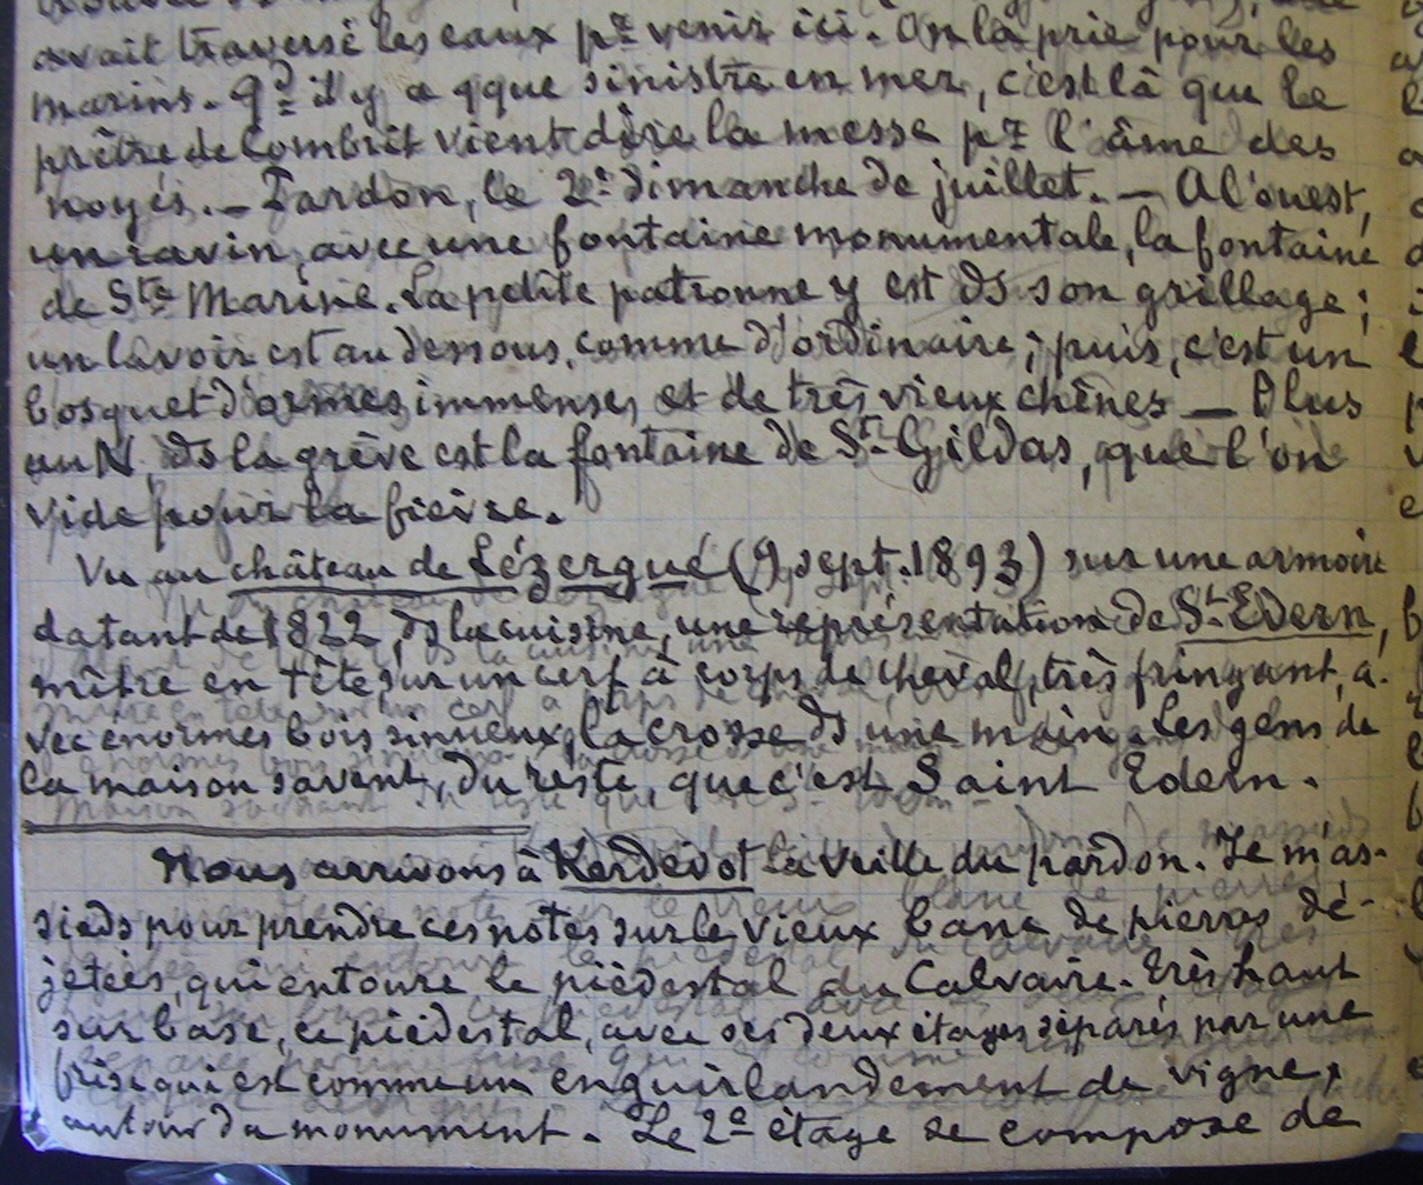 avait traversé les eaux pr venir ici. On la prie pour les
marins. Qd il y a qque sinistre en mer, c'est là que le
prêtre de Combrit vient dire la messe pr l'âme des
noyés. — Pardon, le 2e dimanche de juillet. — A l'ouest,
un ravin, avec une fontaine monumentale, la fontaine
de Ste Marine. La petite patronne y est ds son grillage ;
un lavoir est au dessous, comme d'ordinaire ; puis, c'est un
bosquet d'ormes immenses et de très vieux chênes — Plus
au N. ds la grève est la fontaine de St-Gildas, que l'on
vide pour la fièvre.
Vu au château de Lézergué (9 sept. 1893) sur une armoire
datant de 1822, ds la cuisine, une représentation de St-Edern,
mître en tête, sur un cerf à corps de cheval, très fringant, a-
vec énormes bois sinueux, la crosse ds une main. Les gens de
la maison savent, du reste, que c'est Saint Edern.
Nous arrivons à Kerdévot la veille du pardon. Je m'as-
sieds pour prendre ces notes sur le vieux banc de pierres dé-
jetées, qui entoure le piédestal du Calvaire. Très haut
sur base, ce piédestal, avec ses deux étages séparés par une
frise qui est comme un enguirlandement de vigne,
autour du monument. Le 2e étage se compose de